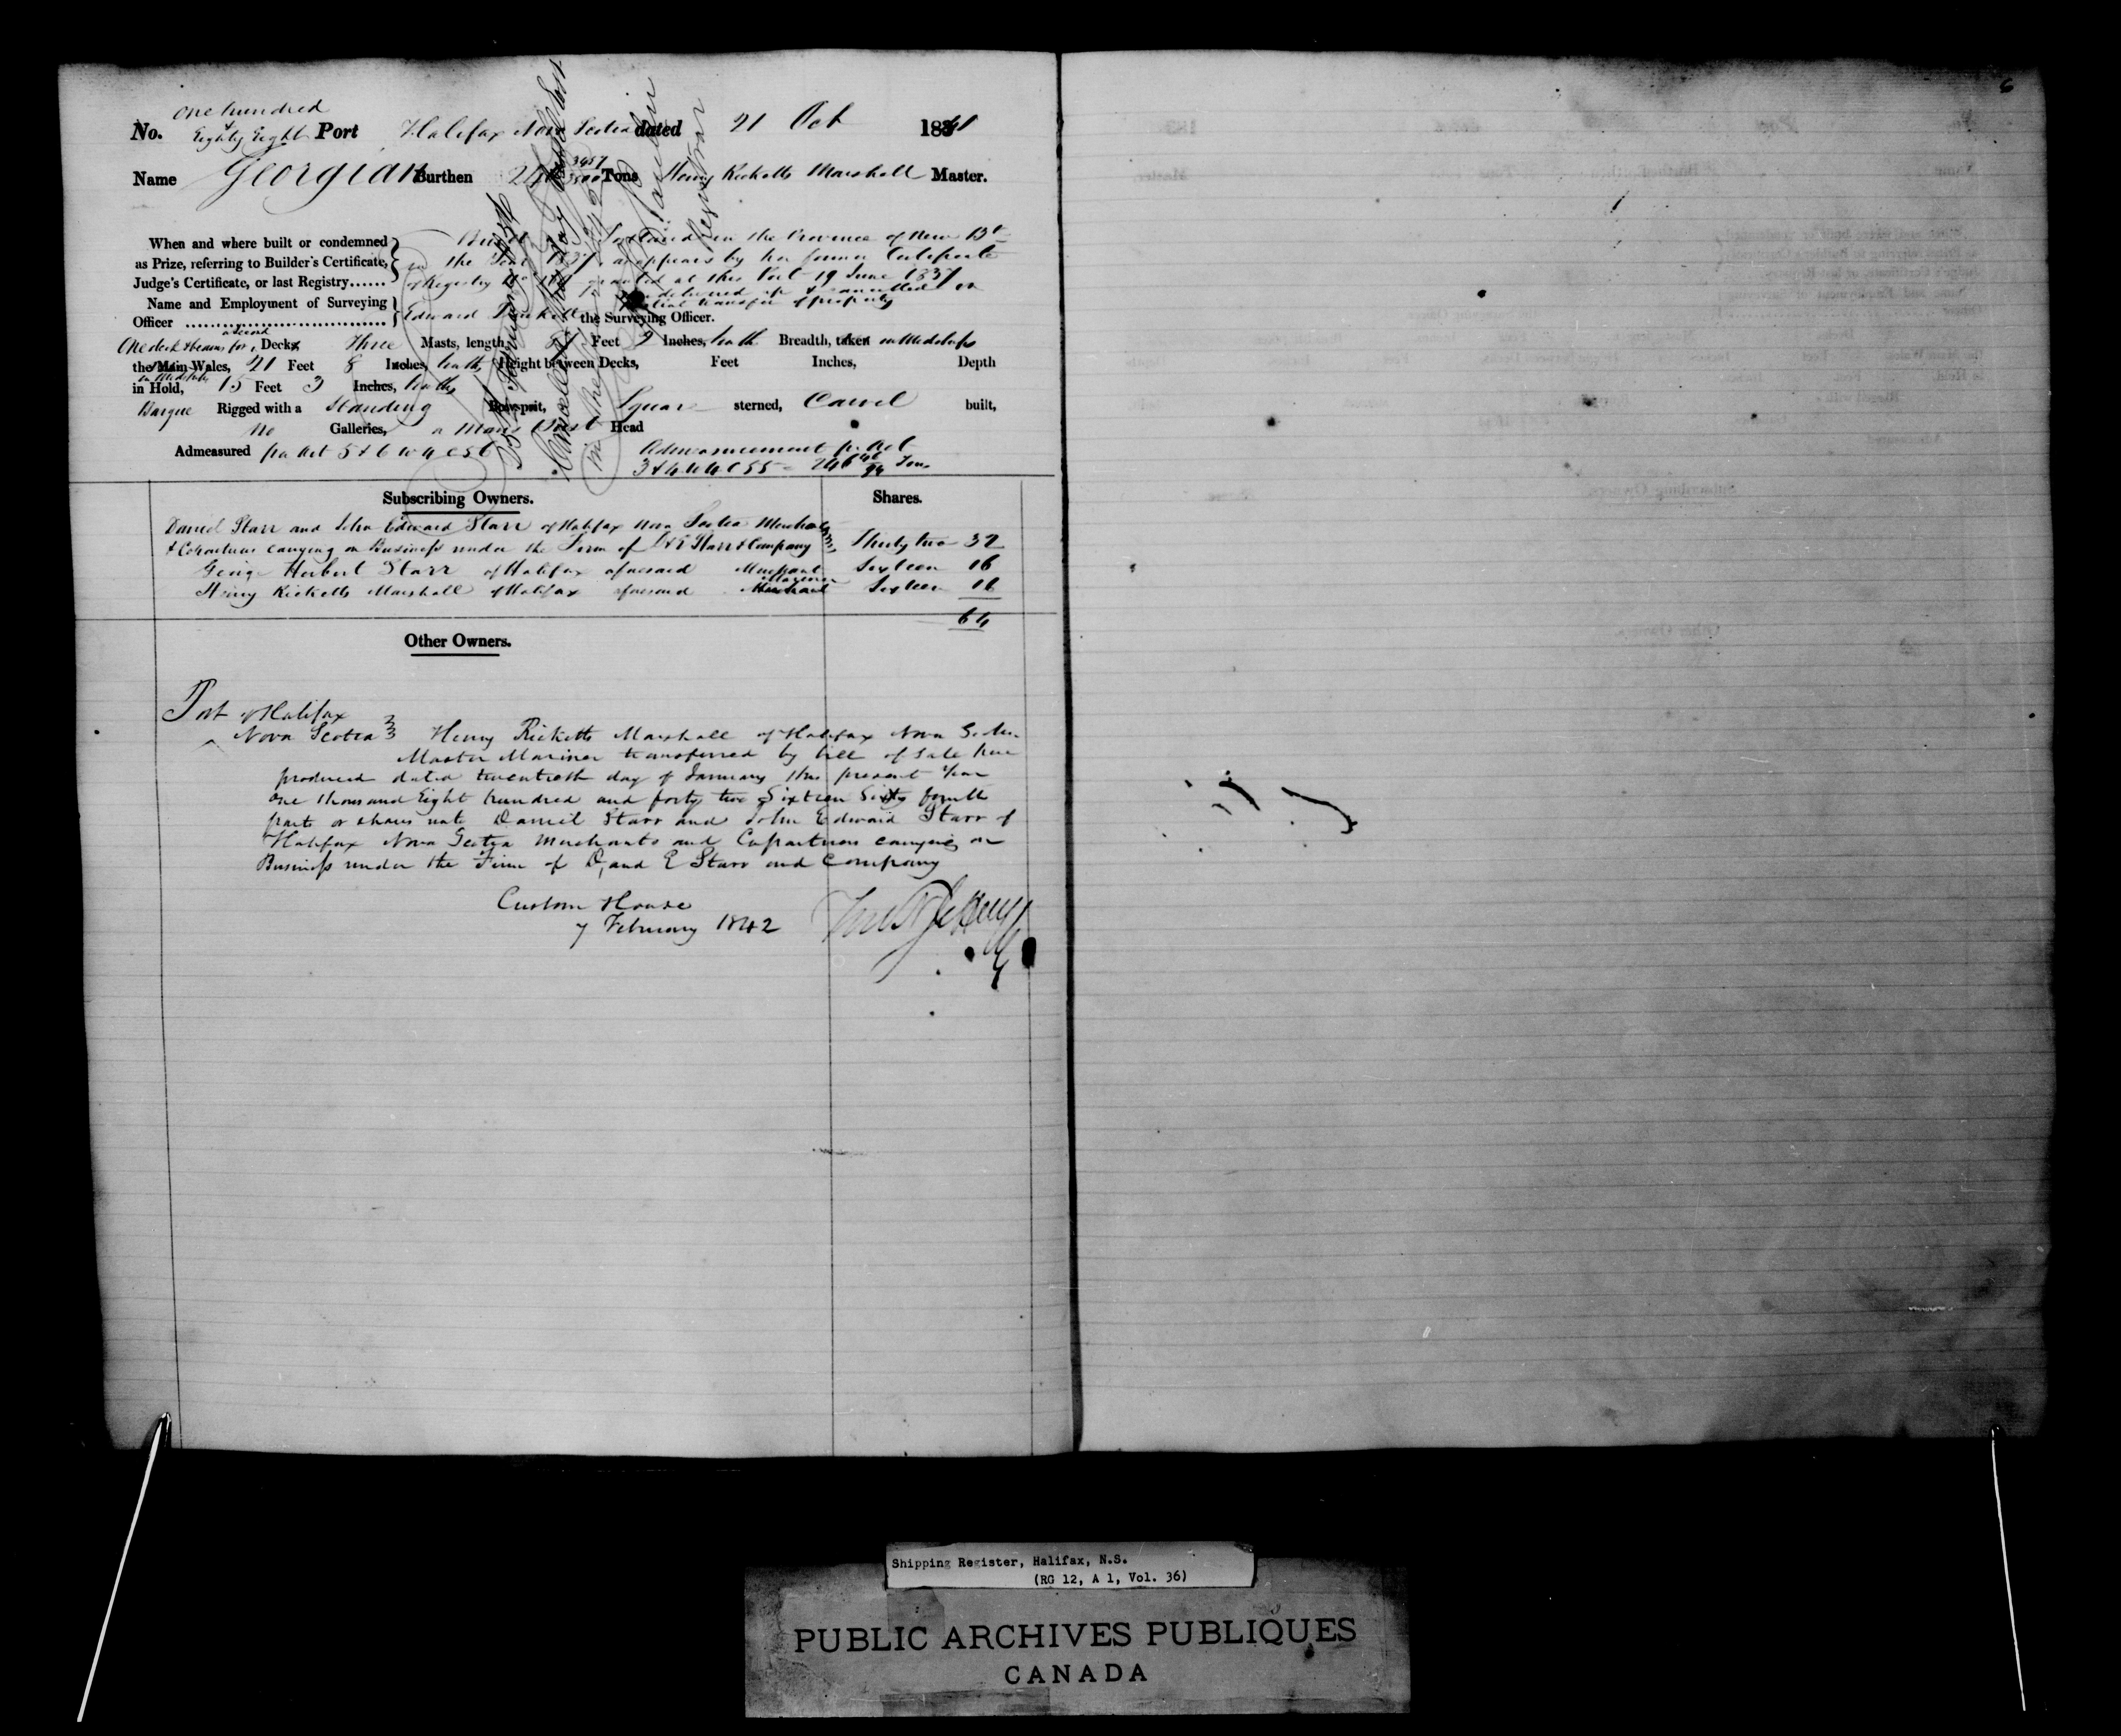 6
one hundred
No. & Eighty Eight Port Halifax Nova Scotia dated 21 Oct 1841
Name Georgian Burthen Tons Henry Ricketts Marshall Master.
When and where built or condemned
as Prize, referring to Builder's Certificate,
Judge's Certificate, or last Registry......
Built at Portland in the Province of New Bk
in the Year 1837 as appears by her former Certificate
of Registry No granted at this Port 19 June 1837
delivered up & cancelled on
partial transfer of property
Name and Employment of Surveying
Officer Edward the Surveying Officer.
a second
One deck & beams for, Decks, Three Masts, length, Feet 9 Inches, tenth Breadth, taken in Midships
the Main Wales, 21 Feet 8 Inches, tenths, Height between Decks, Feet Inches, Depth
in Midships
in Hold, 15 Feet 3 Inches, tenths,
Barque Rigged with a Standing Bowsprit, Square sterned, Carvel built,
No Galleries, a Mans Bust Head
Admeasured per Act 5 & 6 W 4 C 56
Admeasurement pr Act
3 & 4 W 4 C 55 = 246 Tons
Cancelled
Registrar
Subscribing Owners. Shares.
Daniel Starr and John Edward Starr of Halifax Nova Scotia Merchants
& Copartners carrying on Business under the Firm of D & E Starr & Company Thirty two 32
George Herbert Starr of Halifax aforesaid Merchant Sixteen 16
Mariner
Henry Ricketts Marshall of Halifax aforesaid Merchant Sixteen 16
64
Other Owners.
Port of Halifax
Nova Scotia Henry Ricketts Marshall of Halifax Nova Scotia
Master Mariner transferred by bill of Sale here
produced dated twentieth day of January this present Year
One thousand Eight hundred and forty two Sixteen Sixty fourth
parts or shares unto Daniel Starr and John Edward Starr of
Halifax Nova Scotia Merchants and Copartners carrying on
Business under the Firm of D, and E Starr and Company
Custom House
7 February 1842
Shipping Register, Halifax, N.S.
(RG 12, A 1, Vol. 36)
PUBLIC ARCHIVES PUBLIQUES
CANADA